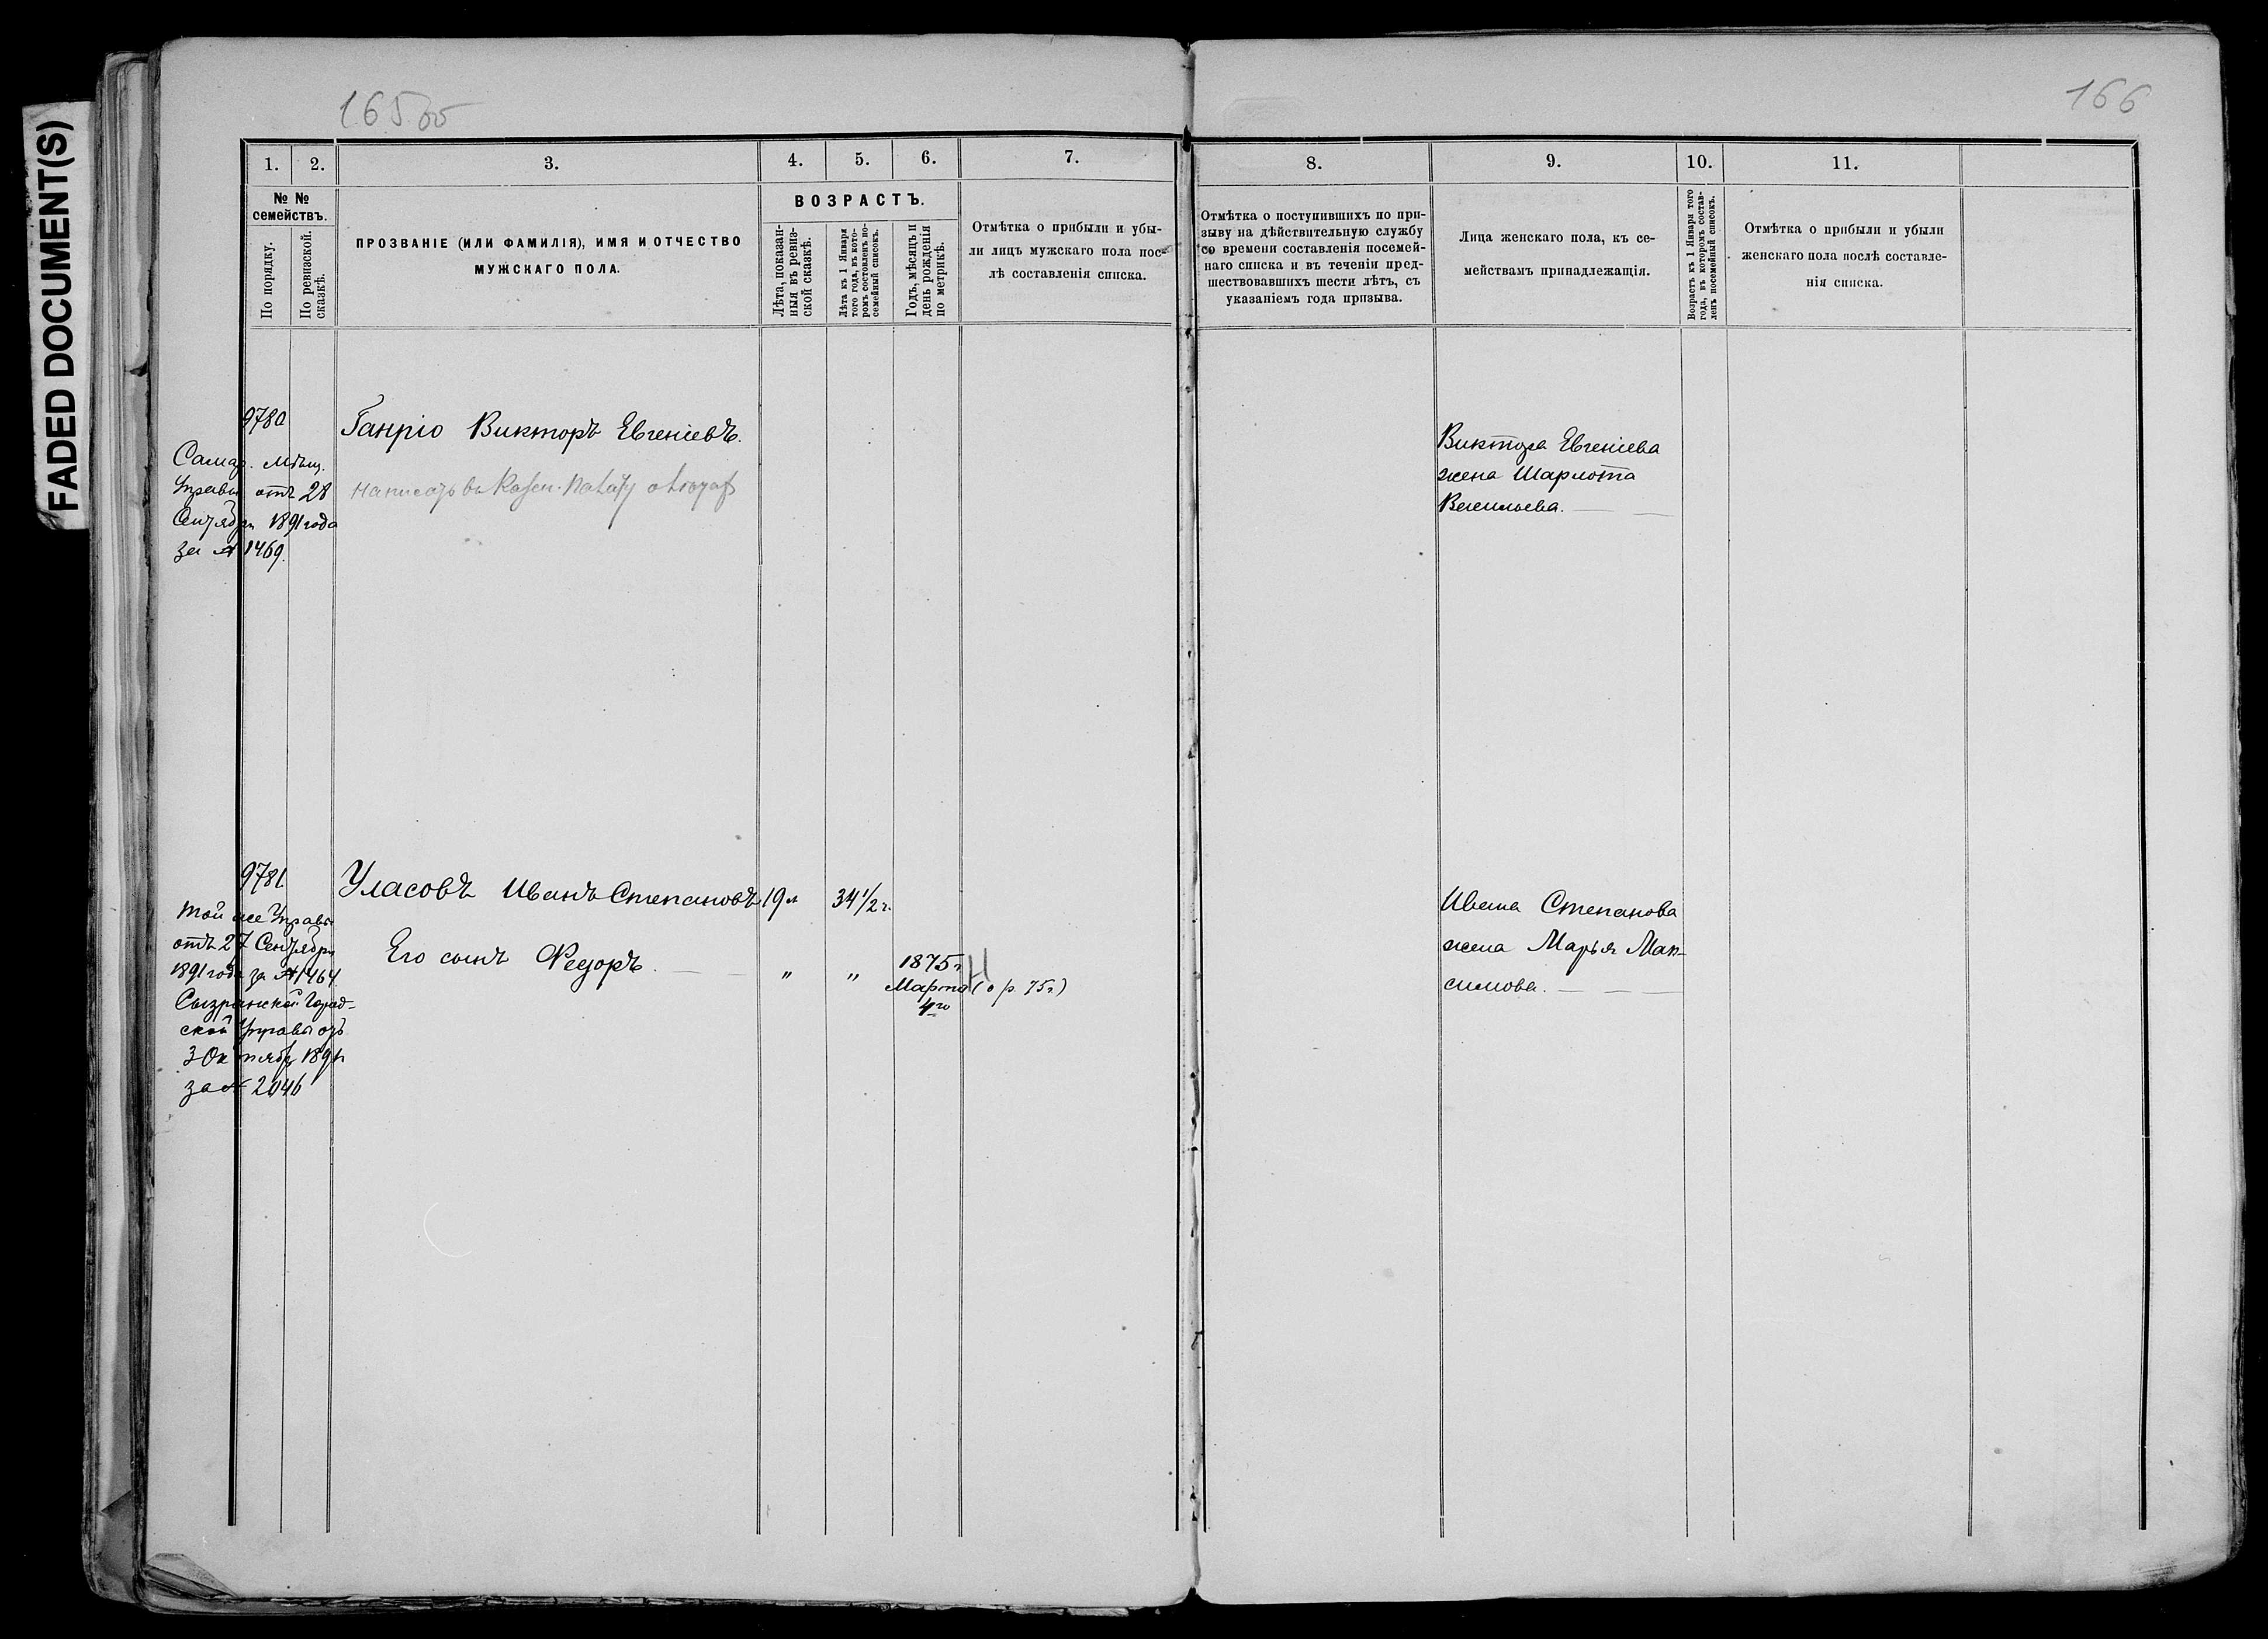 FADED DOCUMENT(S)
165 об
166
1.
2.
3.
4.
5.
6.
7.
8.
9.
10.
11.
№ №
семействъ.
По порядку.
По ревизской
сказкѣ.
ПРОЗВАНІЕ (ИЛИ ФАМИЛІЯ), ИМЯ И ОТЧЕСТВО
МУЖСКАГО ПОЛА.
ВОЗРАСТЪ.
Лѣта, показан-
ныя въ ревиз-
ской сказкѣ.
Лѣта къ 1 Января
того года, въ кото-
ромъ составленъ по-
семейный списокъ.
Годъ, мѣсяцъ и
день рожденія
по метрикѣ.
Отмѣтка о прибыли и убы-
ли лицъ мужскаго пола пос-
лѣ составленія списка.
Отмѣтка о поступившихъ по при-
зыву на дѣйствительную службу
со времени составленія посемей-
наго списка и въ теченіи пред-
шествовавшихъ шести лѣтъ, съ
указаніемъ года призыва.
Лица женскаго пола, къ се-
мействамъ принадлежащія.
Возрастъ къ 1 Января того
года, въ которомъ состав-
ленъ посемейный списокъ.
Отмѣтка о прибыли и убыли
женскаго пола послѣ составле-
нія списка.
9780
Самар. Мѣщ.
Управы отъ 28
Сентября 1891 года
за № 1469.
Ганріо Викторъ Евгеніевъ.
Написать въ
Виктора Евгеніева
жена Шарлота
Васильева.
9781
Той же Управы
отъ 27 Сентября
1891 года за № 1464
Сызранской Город-
ской Управы отъ
3 Октября 1891 г.
за № 2046
Уласовъ Иванъ Степановъ
19 л
34 1/2 г.
Его сынъ Федоръ.
"
"
1875 г
Марта
4го
Н
(о р. 75 г.)
Ивана Степанова
жена Марья Мак-
симова.